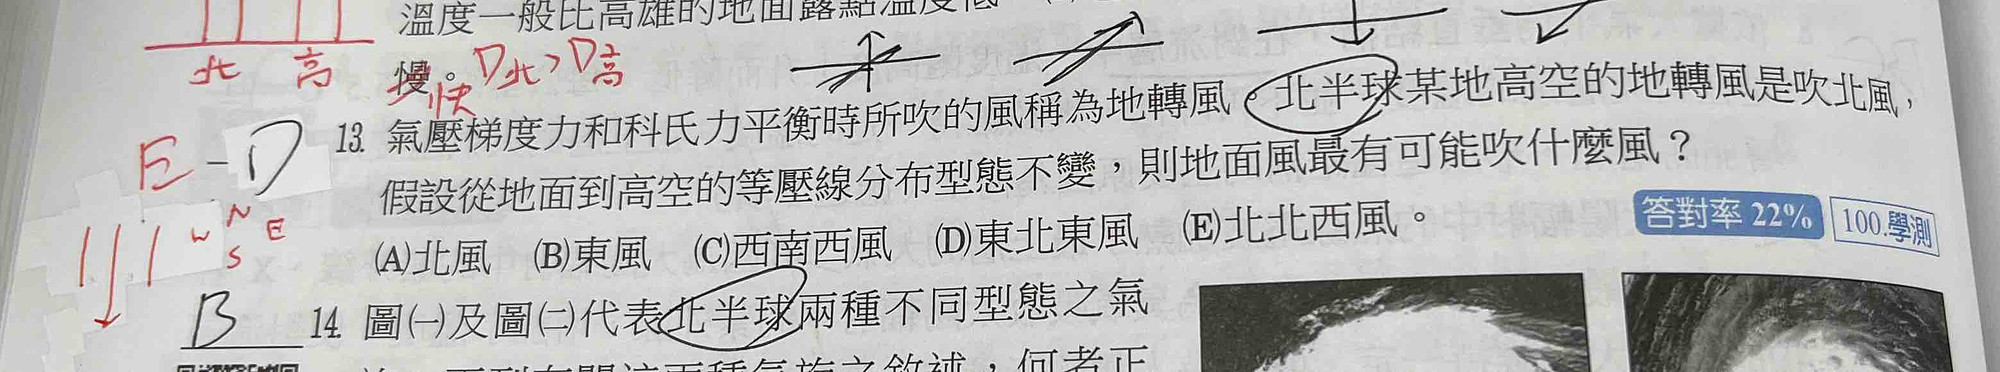 溫度一般比高雄的地面露點溫度低
北 高 慢。 D北 > D高
快
13. 氣壓梯度力和科氏力平衡時所吹的風稱為地轉風。北半球某地高空的地轉風是吹北風，
E - D
假設從地面到高空的等壓線分布型態不變，則地面風最有可能吹什麼風？
N
W E
S
答對率 22% 100.學測
(A)北風 (B)東風 (C)西南西風 (D)東北東風 (E)北北西風。
B 14. 圖㈠及圖㈡代表北半球兩種不同型態之氣
何者正